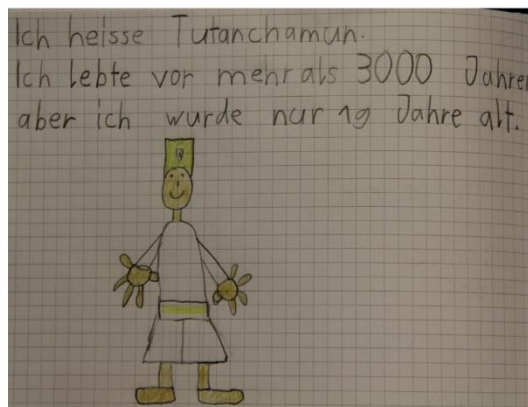 Ich heisse Tutanchamun.
Ich lebte vor mehr als 3000 Jahren
aber ich wurde nur 19 Jahre alt.